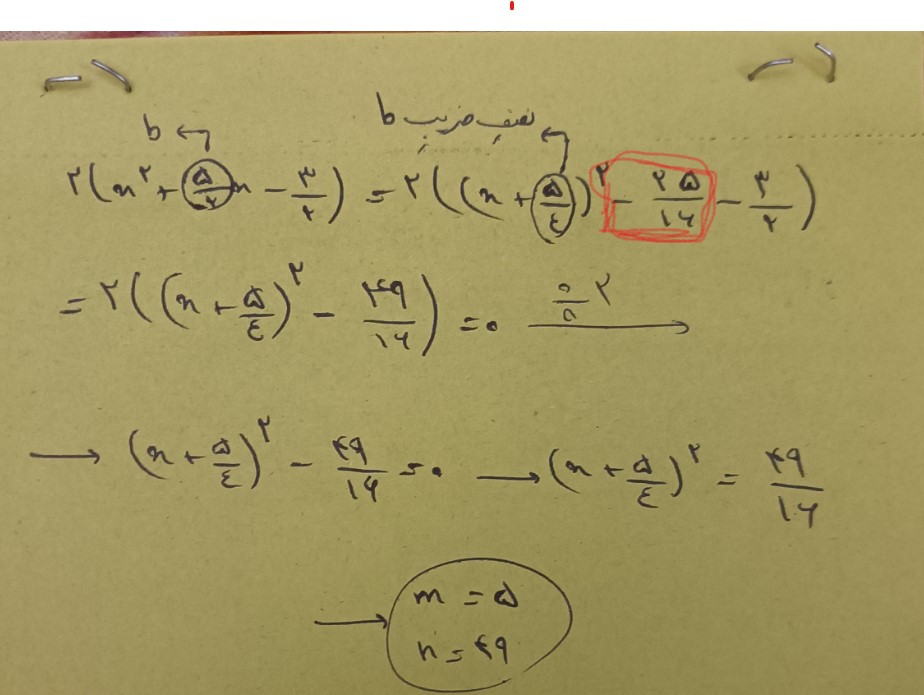 b ← نصف ضریب b ←
۲(x² + ۵/۲ x - ۳/۲) = ۲((x + ۵/٤)² - ۲۵/۱۶ - ۳/۲)
= ۲((x + ۵/٤)² - ۴۹/۱۶) = ۰ ÷۲ →
→ (x + ۵/٤)² - ۴۹/۱۶ = ۰ → (x + ۵/٤)² = ۴۹/۱۶
→ m = ۵
n = ۴۹